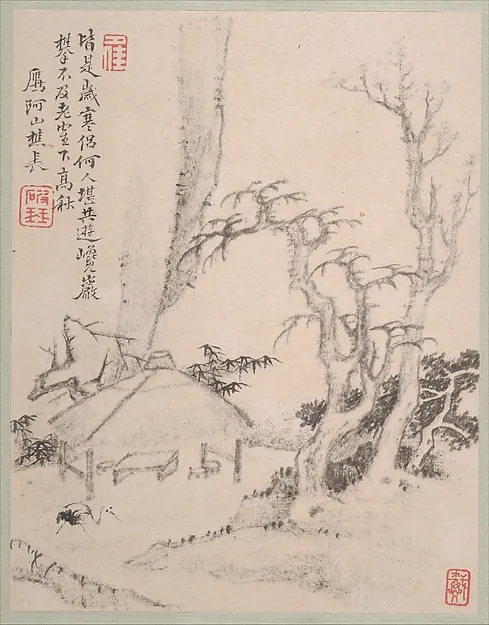 皆是歲寒侶何人堪共遊巉巖
攀不及老下高秋
鷹阿山樵長